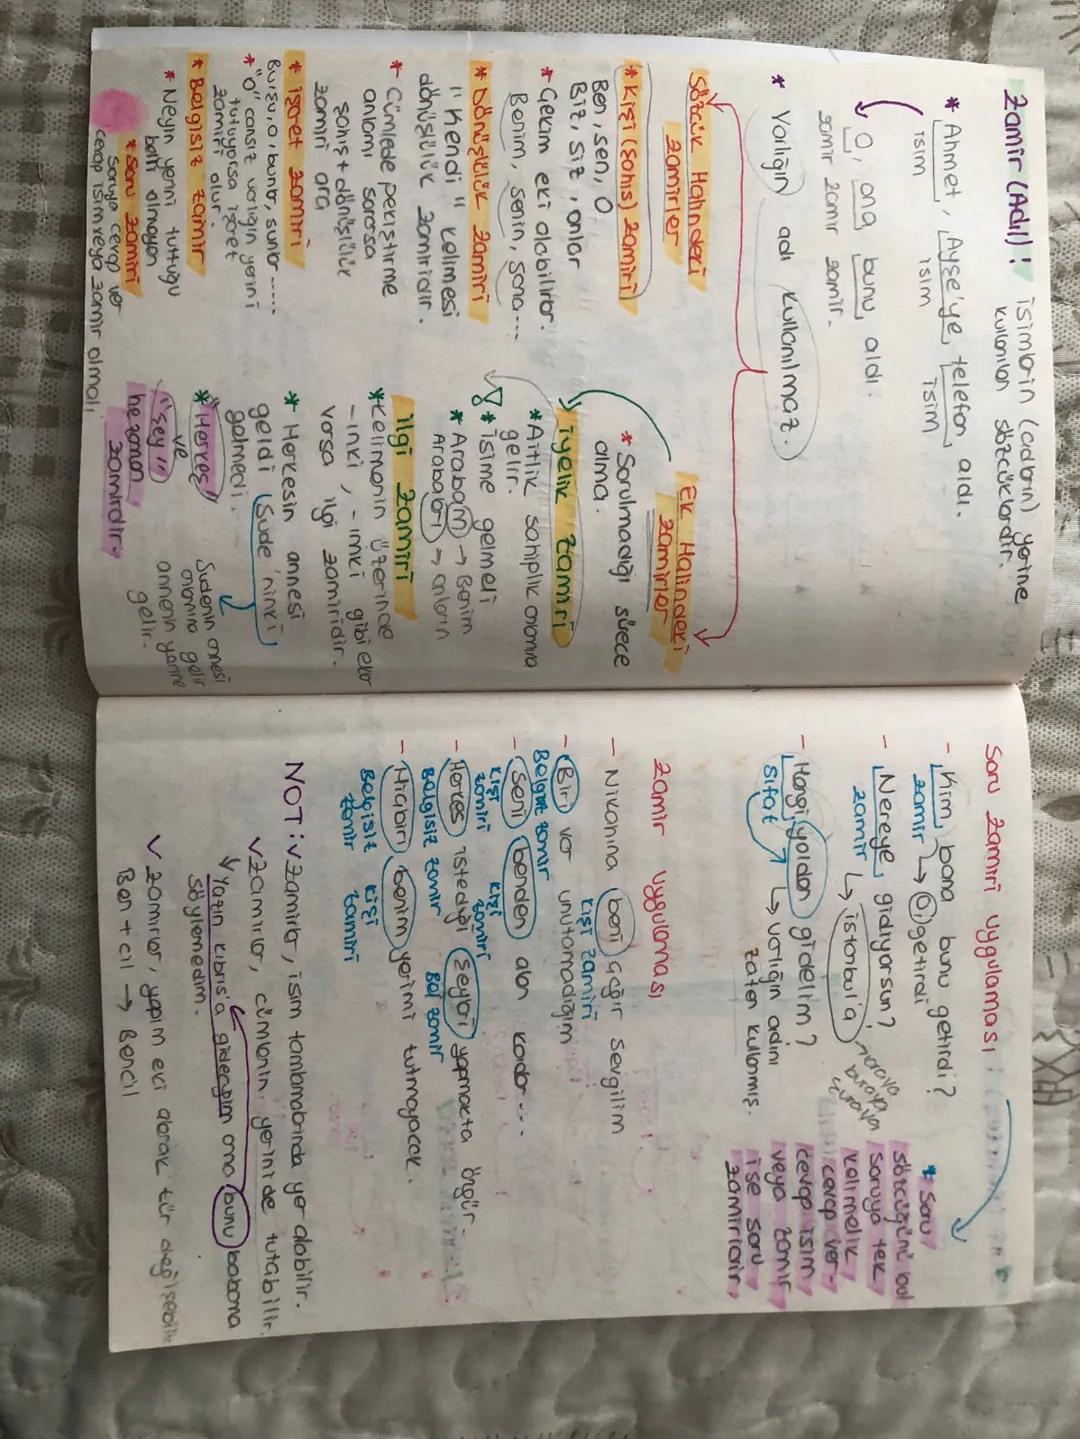 Zamir (Adıl) : isimlerin (adların) yerine
kullanılan sözcüklerdir.
* Ahmet, Ayşe'ye telefon aldı.
isim isim isim
O, ona bunu aldı.
zamir zamir zamir.
* Varlığın adı kullanılmaz.
Sözcük Halindeki
zamirler
* Kişi (şahıs) zamiri
Ben, sen, O
Biz, siz, onlar
* Çekim eki alabilirler.
Benim, senin, sana...
* Dönüşlülük zamiri
"Kendi" kelimesi
dönüşlülük zamiridir.
* Cümlede pekiştirme
anlamı sorarsa
şahıs + dönüşlülük
zamiri ara
* işaret zamiri
Bu, şu, o, bunlar, şunlar.....
* "O" cansız varlığın yerini
tutuyorsa işaret
zamiri olur.
* Belgisiz zamir
* Neyin yerini tuttuğu
belli olmayan
* Soru zamiri
Soruya cevap ver
cevap isim veya zamir olmalı
Ek Halindeki
zamirler
* Sorulmadığı sürece
alma.
iyelik zamiri
* Aitlik sahiplik anlamı
gelir.
* isime gelmeli
* Arabam → Benim
Arabaları → onların
ilgi zamiri
* Kelimenin üzerinde
-inki, -imki gibi ekler
varsa ilgi zamiridir.
* Herkesin annesi
geldi Sude'ninki
gelmedi.
Sudenin annesi
anlamına gelir
annenin yerine
gelir.
* "Herkes"
ve
"şey"
her zaman
zamirdir.
Soru zamiri uygulaması :
- Kim bana bunu getirdi?
zamir → O getirdi
- Nereye gidiyorsun?
zamir → istanbul'a → oraya
buraya
şuraya
- Hangi yoldan gidelim?
sıfat → varlığın adını
zaten kullanmış.
* Soru
sözcüğünü bul
soruya tek
kelimelik
cevap ver-
cevap isim
veya zamir
ise soru
zamiridir.
zamir uygulaması
- Nikahına beni çağır sevgilim
kişi zamiri
- Biri var unutamadığım
Belgisiz zamir
- Seni benden alan kader...
kişi zamiri kişi zamiri
- Herkes istediği şeyleri yapmakta özgür-
Belgisiz zamir Bel zamir
- Hiçbiri benim yerimi tutmayacak.
Belgisiz zamir kişi zamiri
NOT: ✓ zamirler, isim tamlamalarında yer alabilir.
✓ zamirler, cümlenin yerini de tutabilir.
Yazın Kıbrıs'a gideceğim ama bunu babama
söylemedim.
✓ zamirler, yapım eki alarak tür değişebilir
Ben + cil → Bencil